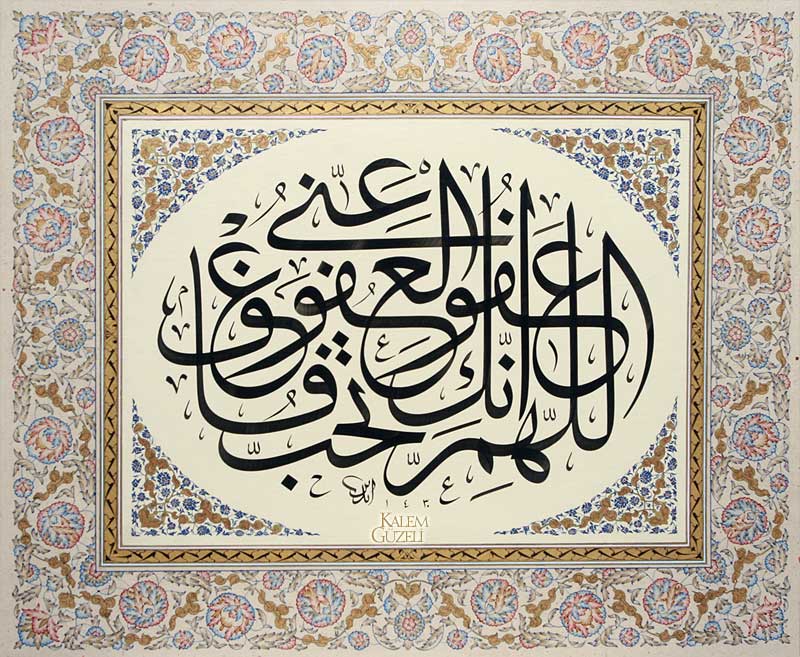 اللّهمّ انّك عفوّ تحبّ العفو فاعف عنّى
١٤٣٠
KALEM
GÜZELİ